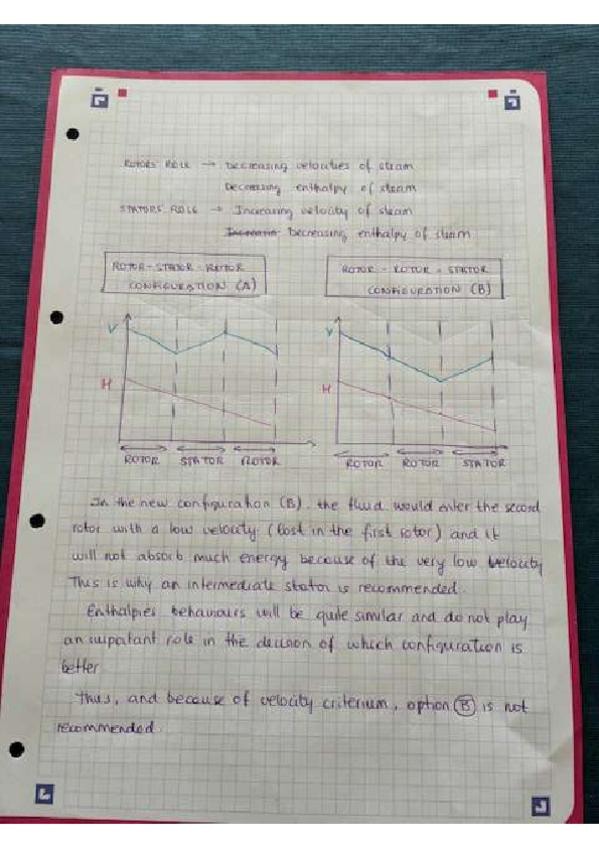 ROTORS' ROLE → Decreasing velocities of steam
Decreasing enthalpy of steam
STATORS' ROLE → Increasing velocity of steam
Decreasing enthalpy of steam
ROTOR - STATOR - ROTOR
CONFIGURATION (A)
ROTOR - ROTOR - STATOR
CONFIGURATION (B)
V
H
ROTOR STATOR ROTOR
V
H
ROTOR ROTOR STATOR
In the new configuration (B), the fluid would enter the second
rotor with a low velocity (lost in the first rotor) and it
will not absorb much energy because of the very low velocity
This is why an intermediate stator is recommended.
Enthalpies behaviours will be quite similar and do not play
an important role in the decision of which configuration is
better.
Thus, and because of velocity criterium, option B is not
recommended.